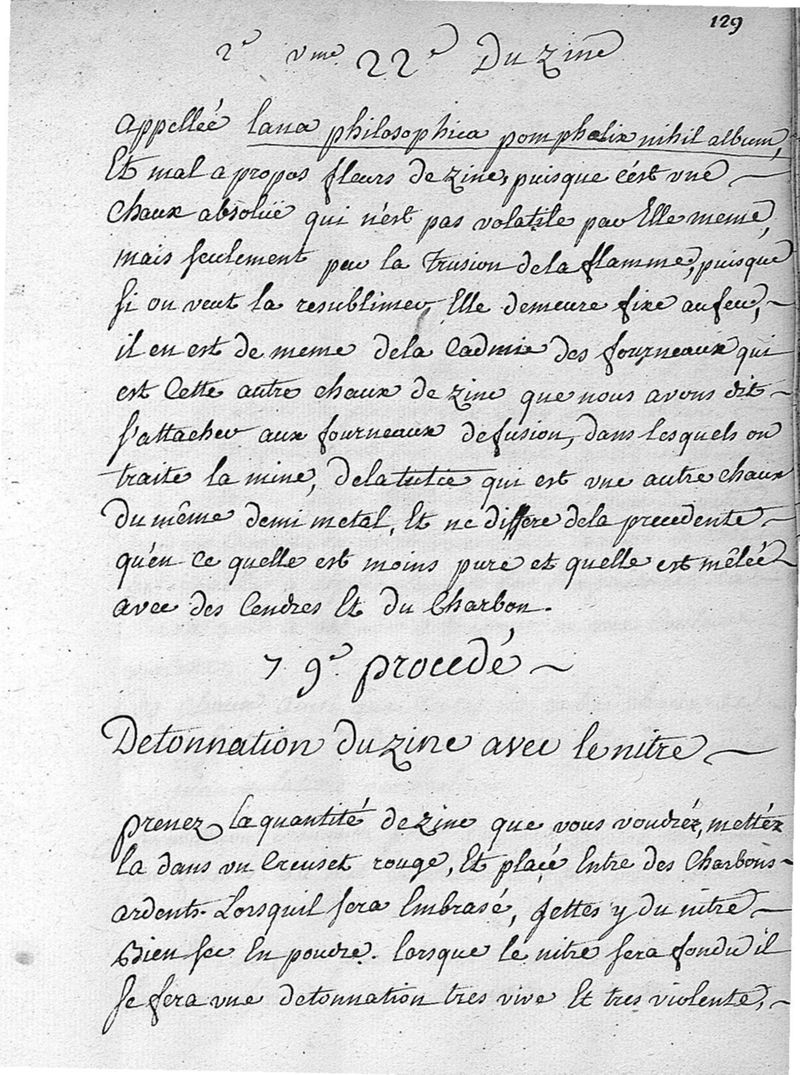 129
2e vme 22e Du zinc
appellée lana philosophica pompholix nihil album,
Et mal a propos fleurs de zinc, puisque c'est vne
Chaux absolüe qui n'est pas volatile par Elle meme,
mais seulement par la trusion de la flamme, puisque
si on veut la resublimer, Elle demeure fixe au feu,
il en est de meme de la Cadmie des fourneaux qui
est Cette autre chaux de zinc que nous avons dit
s'attacher aux fourneaux de fusion, dans lesquels on
traite la mine, de la tutie qui est vne autre chaux
du même demi metal, Et ne differe de la precedente
qu'en Ce quelle est moins pure et quelle est mêleé
avec des Cendres Et du Charbon.
79e procedé
Detonnation du zinc avec le nitre
prenez la quantité de zinc que vous voudréz, mettéz
la dans vn Creuset rouge, Et plaçé Entre des Charbons
ardents. Lorsquil sera Embrasé, jettes y du nitre
Bien sec En poudre. lorsque le nitre sera fondu il
se fera vne detonnation tres vive Et tres violente,